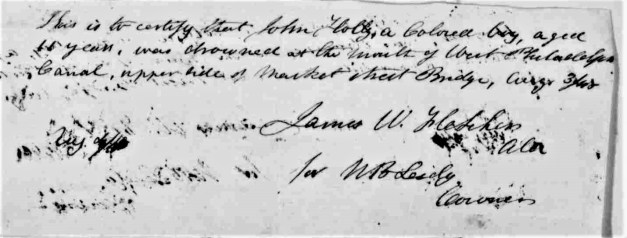 This is to certify that John Holly, a Colored boy, aged
years, was drowned at the mouth of West Philadelphia
Canal, upper side of Market Street Bridge, Aug 3/48
James W. Fletcher
Aug
for N B Leidy
Coroner